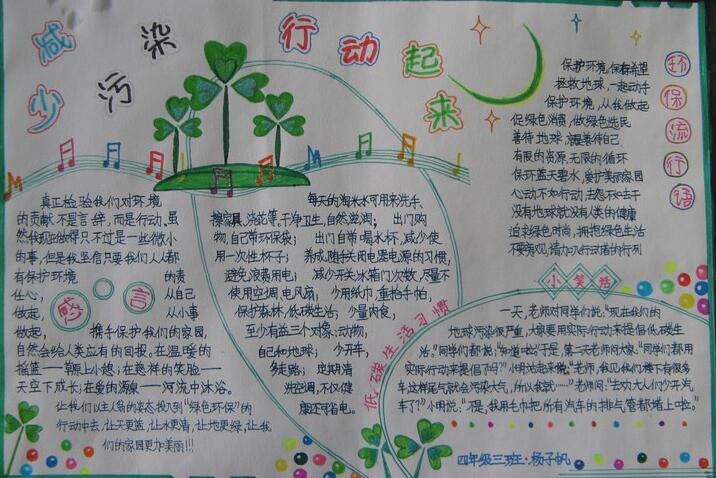 减少污染 行动起来
真正检验我们对环境
的贡献不是言辞,而是行动。虽
然我现在做得只不过是一些微小
的事,但是我坚信只要我们人人都
有保护环境 的责
任心, 从自己
做起, 从小事
做起, 携手保护我们的家园,
自然会给人类应有的回报。在温暖的
摇篮——草原上小憩;在慈祥的笑脸——
天空下成长;在爱的源泉——河流中沐浴。
让我们以主人翁的姿态投入到“绿色环保”的
行动中去,让天更蓝,让水更清,让地更绿,让我
们的家园更加美丽!!!
感言
每天的淘米水可用来洗手、
擦家具、浇花等,干净卫生,自然滋润;出门购
物,自己带环保袋;出门自带喝水杯,减少使
用一次性杯子;养成随手关闭电器电源的习惯,
避免浪费用电;减少开关冰箱门次数,尽量不
使用空调,电风扇;少用纸巾,重拾手帕,
保护森林,低碳生活;少量肉食,
至少有益三个对像:动物,
自己和地球;少开车,
多走路;定期清
洗空调,不仅健
康还可省电。
低碳生活习惯
环保流行语
保护环境,保存希望
拯救地球,一起动手
保护环境,从我做起
促绿色消费,做绿色选民
善待地球,善待自己
有限的资源,无限的循环
保环蓝天碧水,爱护美丽家园
心动不如行动,去怨不如去干
没有地球就没有人类的健康
追求绿色时尚,拥抱绿色生活
不要旁观,请加入行动者的行列
小笑话
一天,老师对同学们说:“现在我们的
地球污染很严重,大家要用实际行动来提倡低碳生
活。”同学们都说:“知道啦!”于是,第二天老师问大家:“同学们都用
实际行动来提倡了吗?”小明站起来说:“老师,我见我们楼下有很多
车,这样尾气就会污染大气,所以我就……”老师问:“去劝大人们少开汽
车了?”小明说:“不是,我用毛巾把所有汽车的排气管都堵上啦。”
四年级三班:杨子帆